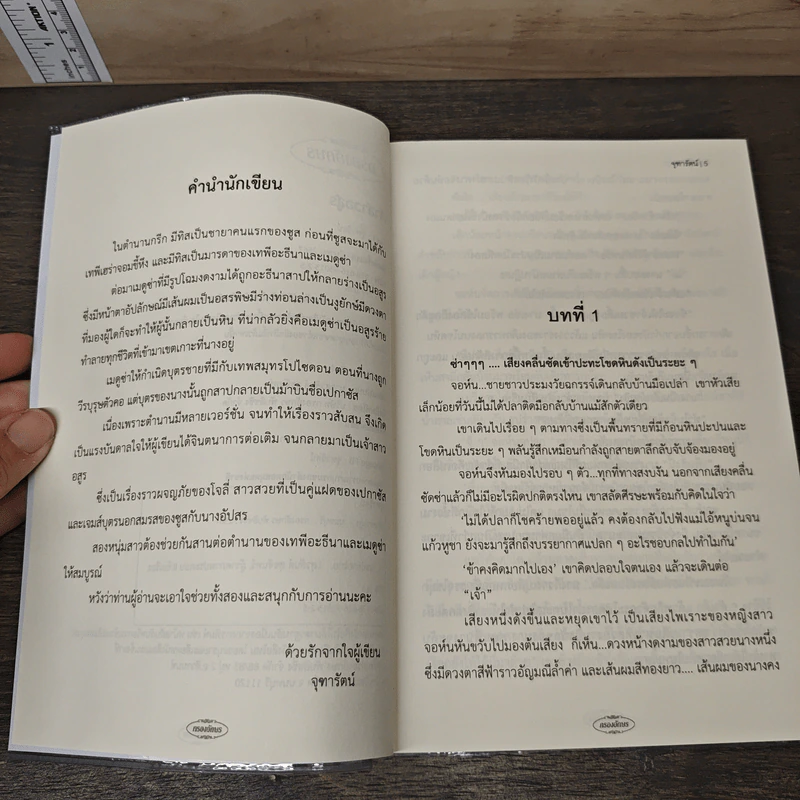 คำนำนักเขียน
ในตำนานกรีก มีทิสเป็นชายาคนแรกของซูส ก่อนที่ซูสจะมาได้กับ
เทพีเฮร่าจอมขี้หึง และมีทิสเป็นมารดาของเทพีอะธีนาและเมดูซ่า
ต่อมาเมดูซ่าที่มีรูปโฉมงดงามได้ถูกอะธีนาสาปให้กลายร่างเป็นอสูร
ซึ่งมีหน้าตาอัปลักษณ์มีเส้นผมเป็นอสรพิษมีร่างท่อนล่างเป็นงูยักษ์มีดวงตา
ที่มองผู้ใดก็จะทำให้ผู้นั้นกลายเป็นหิน ที่น่ากลัวยิ่งคือเมดูซ่าเป็นอสูรร้าย
ทำลายทุกชีวิตที่เข้ามาเขตเกาะที่นางอยู่
เมดูซ่าให้กำเนิดบุตรชายที่มีกับเทพสมุทรโปไซดอน ตอนที่นางถูก
วีรบุรุษตัวคอ แต่บุตรของนางนั้นถูกสาปกลายเป็นม้าบินชื่อเปกาซัส
เนื่องเพราะตำนานมีหลายเวอร์ชั่น จนทำให้เรื่องราวสับสน จึงเกิด
เป็นแรงบันดาลใจให้ผู้เขียนได้จินตนาการต่อเติม จนกลายมาเป็นเจ้าสาว
อสูร
ซึ่งเป็นเรื่องราวผจญภัยของโจลี่ สาวสวยที่เป็นคู่แฝดของเปกาซัส
และเจมส์บุตรนอกสมรสของซูสกับนางอัปสร
สองหนุ่มสาวต้องช่วยกันสานต่อตำนานของเทพีอะธีนาและเมดูซ่า
ให้สมบูรณ์
หวังว่าท่านผู้อ่านจะเอาใจช่วยทั้งสองและสนุกกับการอ่านนะคะ
ด้วยรักจากใจผู้เขียน
จุฑารัตน์
กรองอักษร
จุฑารัตน์ | 5
บทที่ 1
ซ่าๆๆๆ .... เสียงคลื่นซัดเข้าปะทะโขดหินดังเป็นระยะ ๆ
จอห์น...ชายชาวประมงวัยฉกรรจ์เดินกลับบ้านมือเปล่า เขาหัวเสีย
เล็กน้อยที่วันนี้ไม่ได้ปลาติดมือกลับบ้านแม้สักตัวเดียว
เขาเดินไปเรื่อย ๆ ตามทางซึ่งเป็นพื้นทรายที่มีก้อนหินปะปนและ
โขดหินเป็นระยะ ๆ พลันรู้สึกเหมือนกำลังถูกสายตาลึกลับจับจ้องมองอยู่
จอห์นจึงหันมองไปรอบ ๆ ตัว...ทุกที่ทางสงบงัน นอกจากเสียงคลื่น
ซัดซ่าแล้วก็ไม่มีอะไรผิดปกติตรงไหน เขาสลัดศีรษะพร้อมกับคิดในใจว่า
‘ไม่ได้ปลาก็โชคร้ายพออยู่แล้ว คงต้องกลับไปฟังแม่ไอ้หนูบ่นจน
แก้วหูชา ยังจะมารู้สึกถึงบรรยากาศแปลก ๆ อะไรชอบกลไปทำไมกัน’
‘ข้าคงคิดมากไปเอง’ เขาคิดปลอบใจตนเอง แล้วจะเดินต่อ
“เจ้า”
เสียงหนึ่งดังขึ้นและหยุดเขาไว้ เป็นเสียงไพเราะของหญิงสาว
จอห์นหันขวับไปมองต้นเสียง ก็เห็น...ดวงหน้าดงามของสาวสวยนางหนึ่ง
ซึ่งมีดวงตาสีฟ้าราวอัญมณีล้ำค่า และเส้นผมสีทองยาว.... เส้นผมของนางคง
กรองอักษร